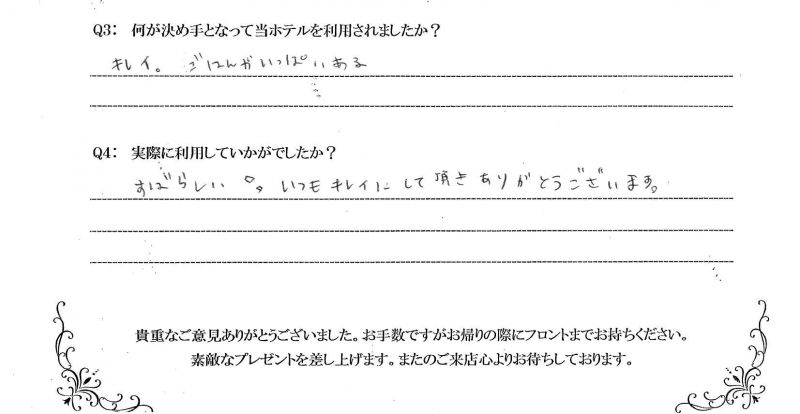 Q3： 何が決め手となって当ホテルを利用されましたか？
キレイ。 ごはんがいっぱいある
Q4： 実際に利用していかがでしたか？
すばらしい。 いつもキレイにして頂きありがとうございます。
貴重なご意見ありがとうございました。お手数ですがお帰りの際にフロントまでお持ちください。
素敵なプレゼントを差し上げます。またのご来店心よりお待ちしております。